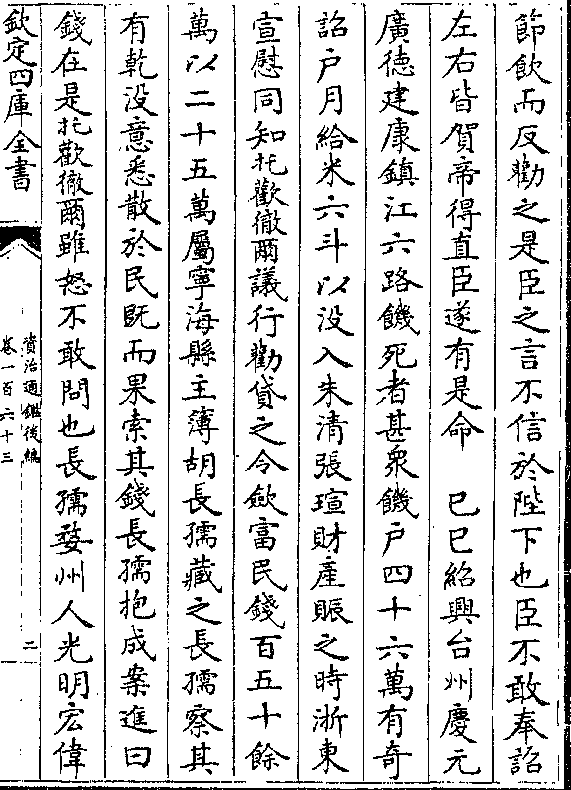 節飲而反勸之是臣之言不信於陛下也臣不敢奉詔
左右皆賀帝得直臣遂有是命　己巳紹興台州慶元
廣德建康鎮江六路饑死者甚衆饑户四十六萬有奇
詔户月給米六斗以没入朱清張瑄財產賑之時浙東
宣慰同知托歡徹爾議行勸貸之令斂富民錢百五十餘
萬以二十五萬屬寧海縣主簿胡長孺藏之長孺察其
有乾没意悉散於民既而果索其錢長孺抱成案進曰
錢在是托歡徹爾雖怒不敢問也長孺婺州人光明宏偉
欽定四庫全書
資治通鑑後編
卷一百六十三
二